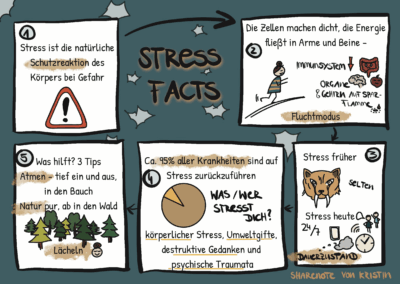 STRESS
FACTS
1
Stress ist die natürliche
Schutzreaktion des
Körpers bei Gefahr
2
Die Zellen machen dicht, die Energie
fließt in Arme und Beine -
IMMUNSYSTEM
ORGANE
& GEHIRN AUF SPAR-
FLAMME
Fluchtmodus
3
Stress früher
SELTEN
Stress heute
24/7
DAUERZUSTAND
4
Ca. 95% aller Krankheiten sind auf
Stress zurückzuführen
WAS / WER
STRESST
DICH?
körperlicher Stress, Umweltgifte,
destruktive Gedanken und
psychische Traumata
5
Was hilft? 3 Tips
Atmen - tief ein und aus,
in den Bauch
Natur pur, ab in den Wald
Lächeln
SHARENOTE VON KRISTIN